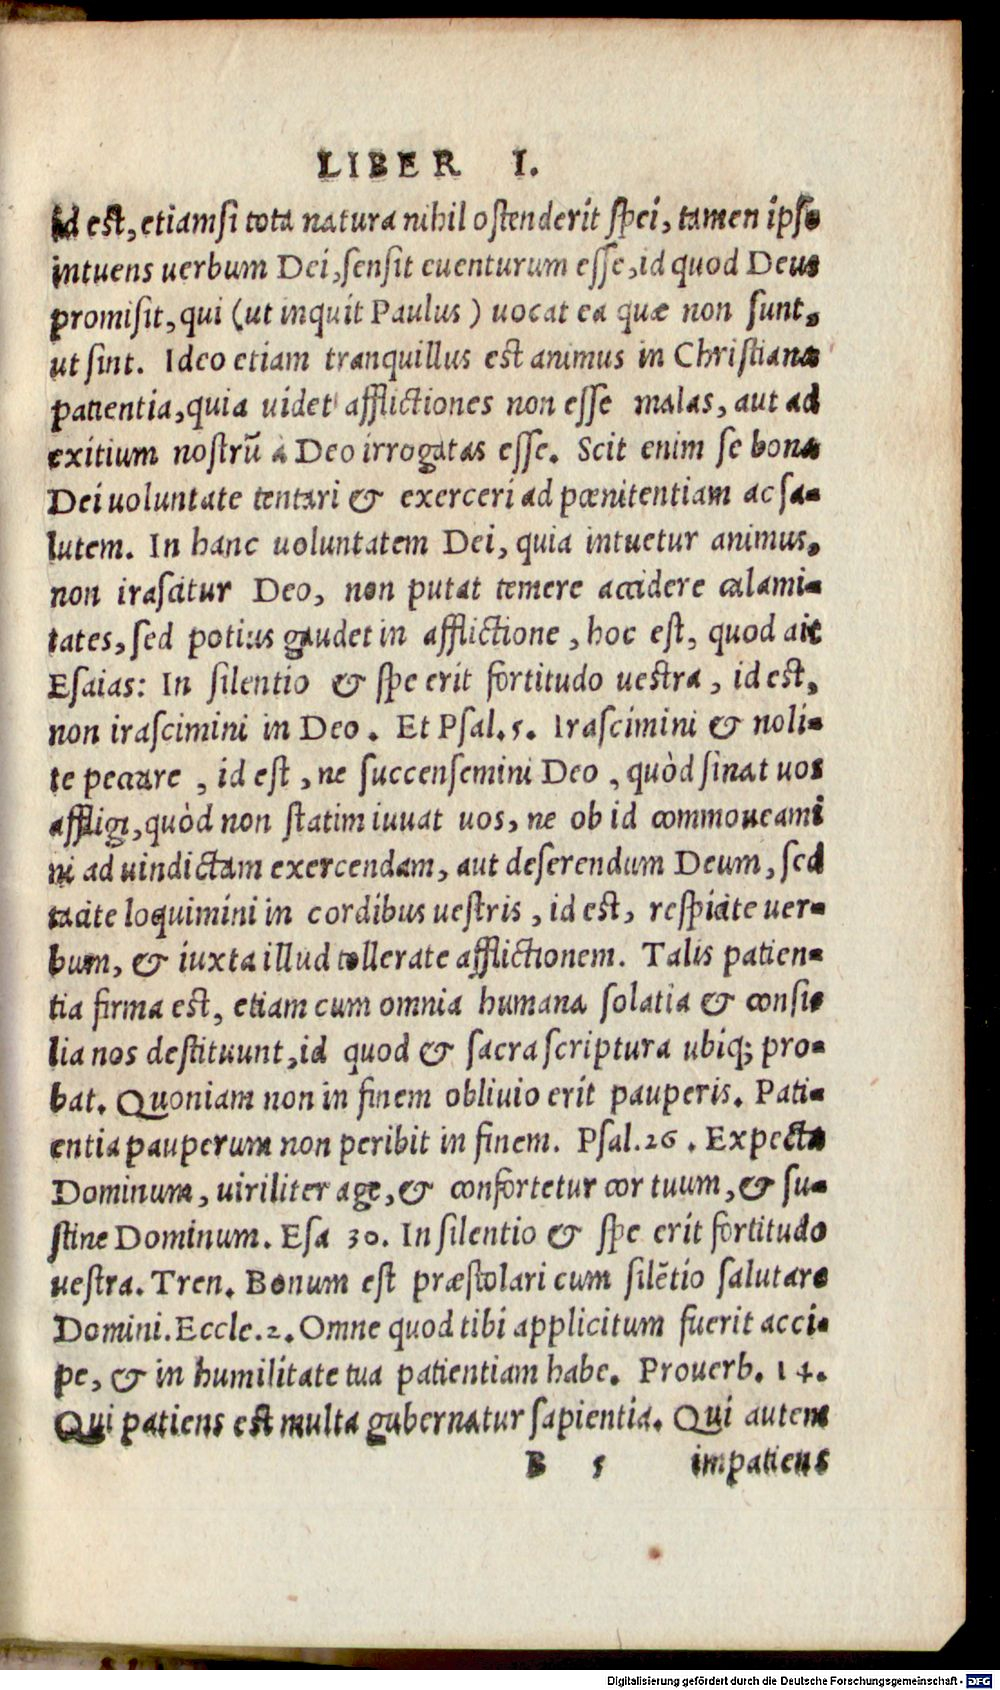 LIBER I.
id est, etiamsi tota natura nihil ostenderit spei, tamen ipse
intuens uerbum Dei, sensit euenturum esse, id quod Deus
promisit, qui (ut inquit Paulus) uocat ea quæ non sunt,
ut sint. Ideo etiam tranquillus est animus in Christiana
patientia, quia uidet afflictiones non esse malas, aut ad
exitium nostrũ à Deo irrogatas esse. Scit enim se bona
Dei uoluntate tentari & exerceri ad pœnitentiam ac sa-
lutem. In hanc uoluntatem Dei, quia intuetur animus,
non irascitur Deo, non putat temere accidere calami-
tates, sed potius gaudet in afflictione, hoc est, quod ait
Esaias: In silentio & spe erit fortitudo uestra, id est,
non irascimini in Deo. Et Psal. 5. Irascimini & noli-
te peccare, id est, ne succensemini Deo, quòd sinat uos
affligi, quòd non statim iuuat uos, ne ob id commoueami
ni ad uindictam exercendam, aut deserendum Deum, sed
tacite loquimini in cordibus uestris, id est, respicite uer-
bum, & iuxta illud tollerate afflictionem. Talis patien-
tia firma est, etiam cum omnia humana solatia & consi-
lia nos destituunt, id quod & sacra scriptura ubiq; pro-
bat. Quoniam non in finem obliuio erit pauperis. Pati-
entia pauperum non peribit in finem. Psal. 26. Expecta
Dominum, uiriliter age, & confortetur cor tuum, & su-
stine Dominum. Esa 30. In silentio & spe erit fortitudo
uestra. Tren. Bonum est præstolari cum silẽtio salutare
Domini. Eccle. 2. Omne quod tibi applicitum fuerit acci-
pe, & in humilitate tua patientiam habe. Prouerb. 14.
Qui patiens est multa gubernatur sapientia. Qui autem
B 5 impatiens
Digitalisierung gefördert durch die Deutsche Forschungsgemeinschaft - DFG